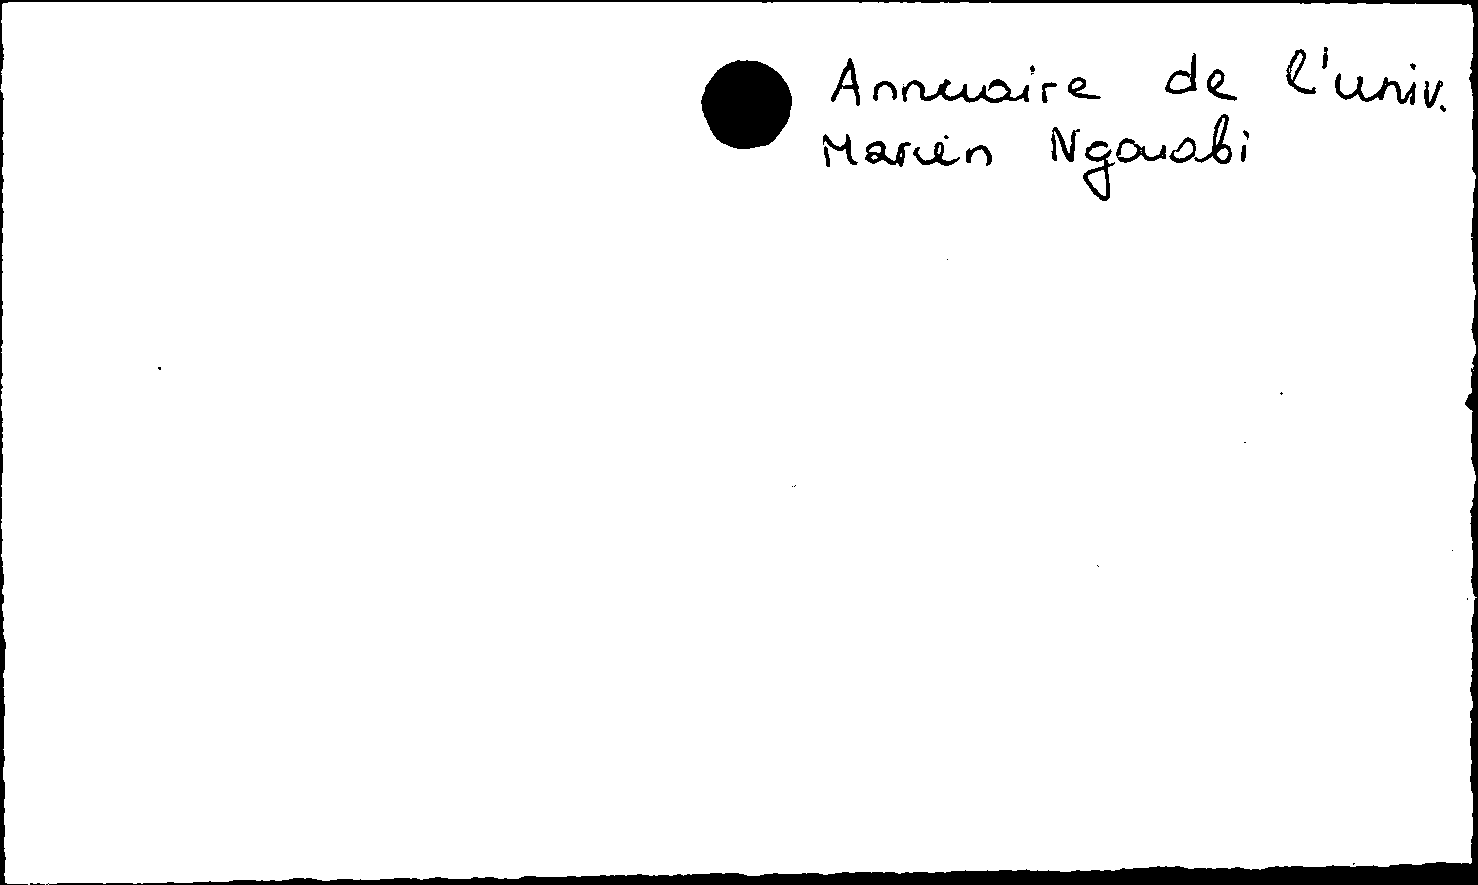 Annuaire de l'univ.
Marien Ngouabi